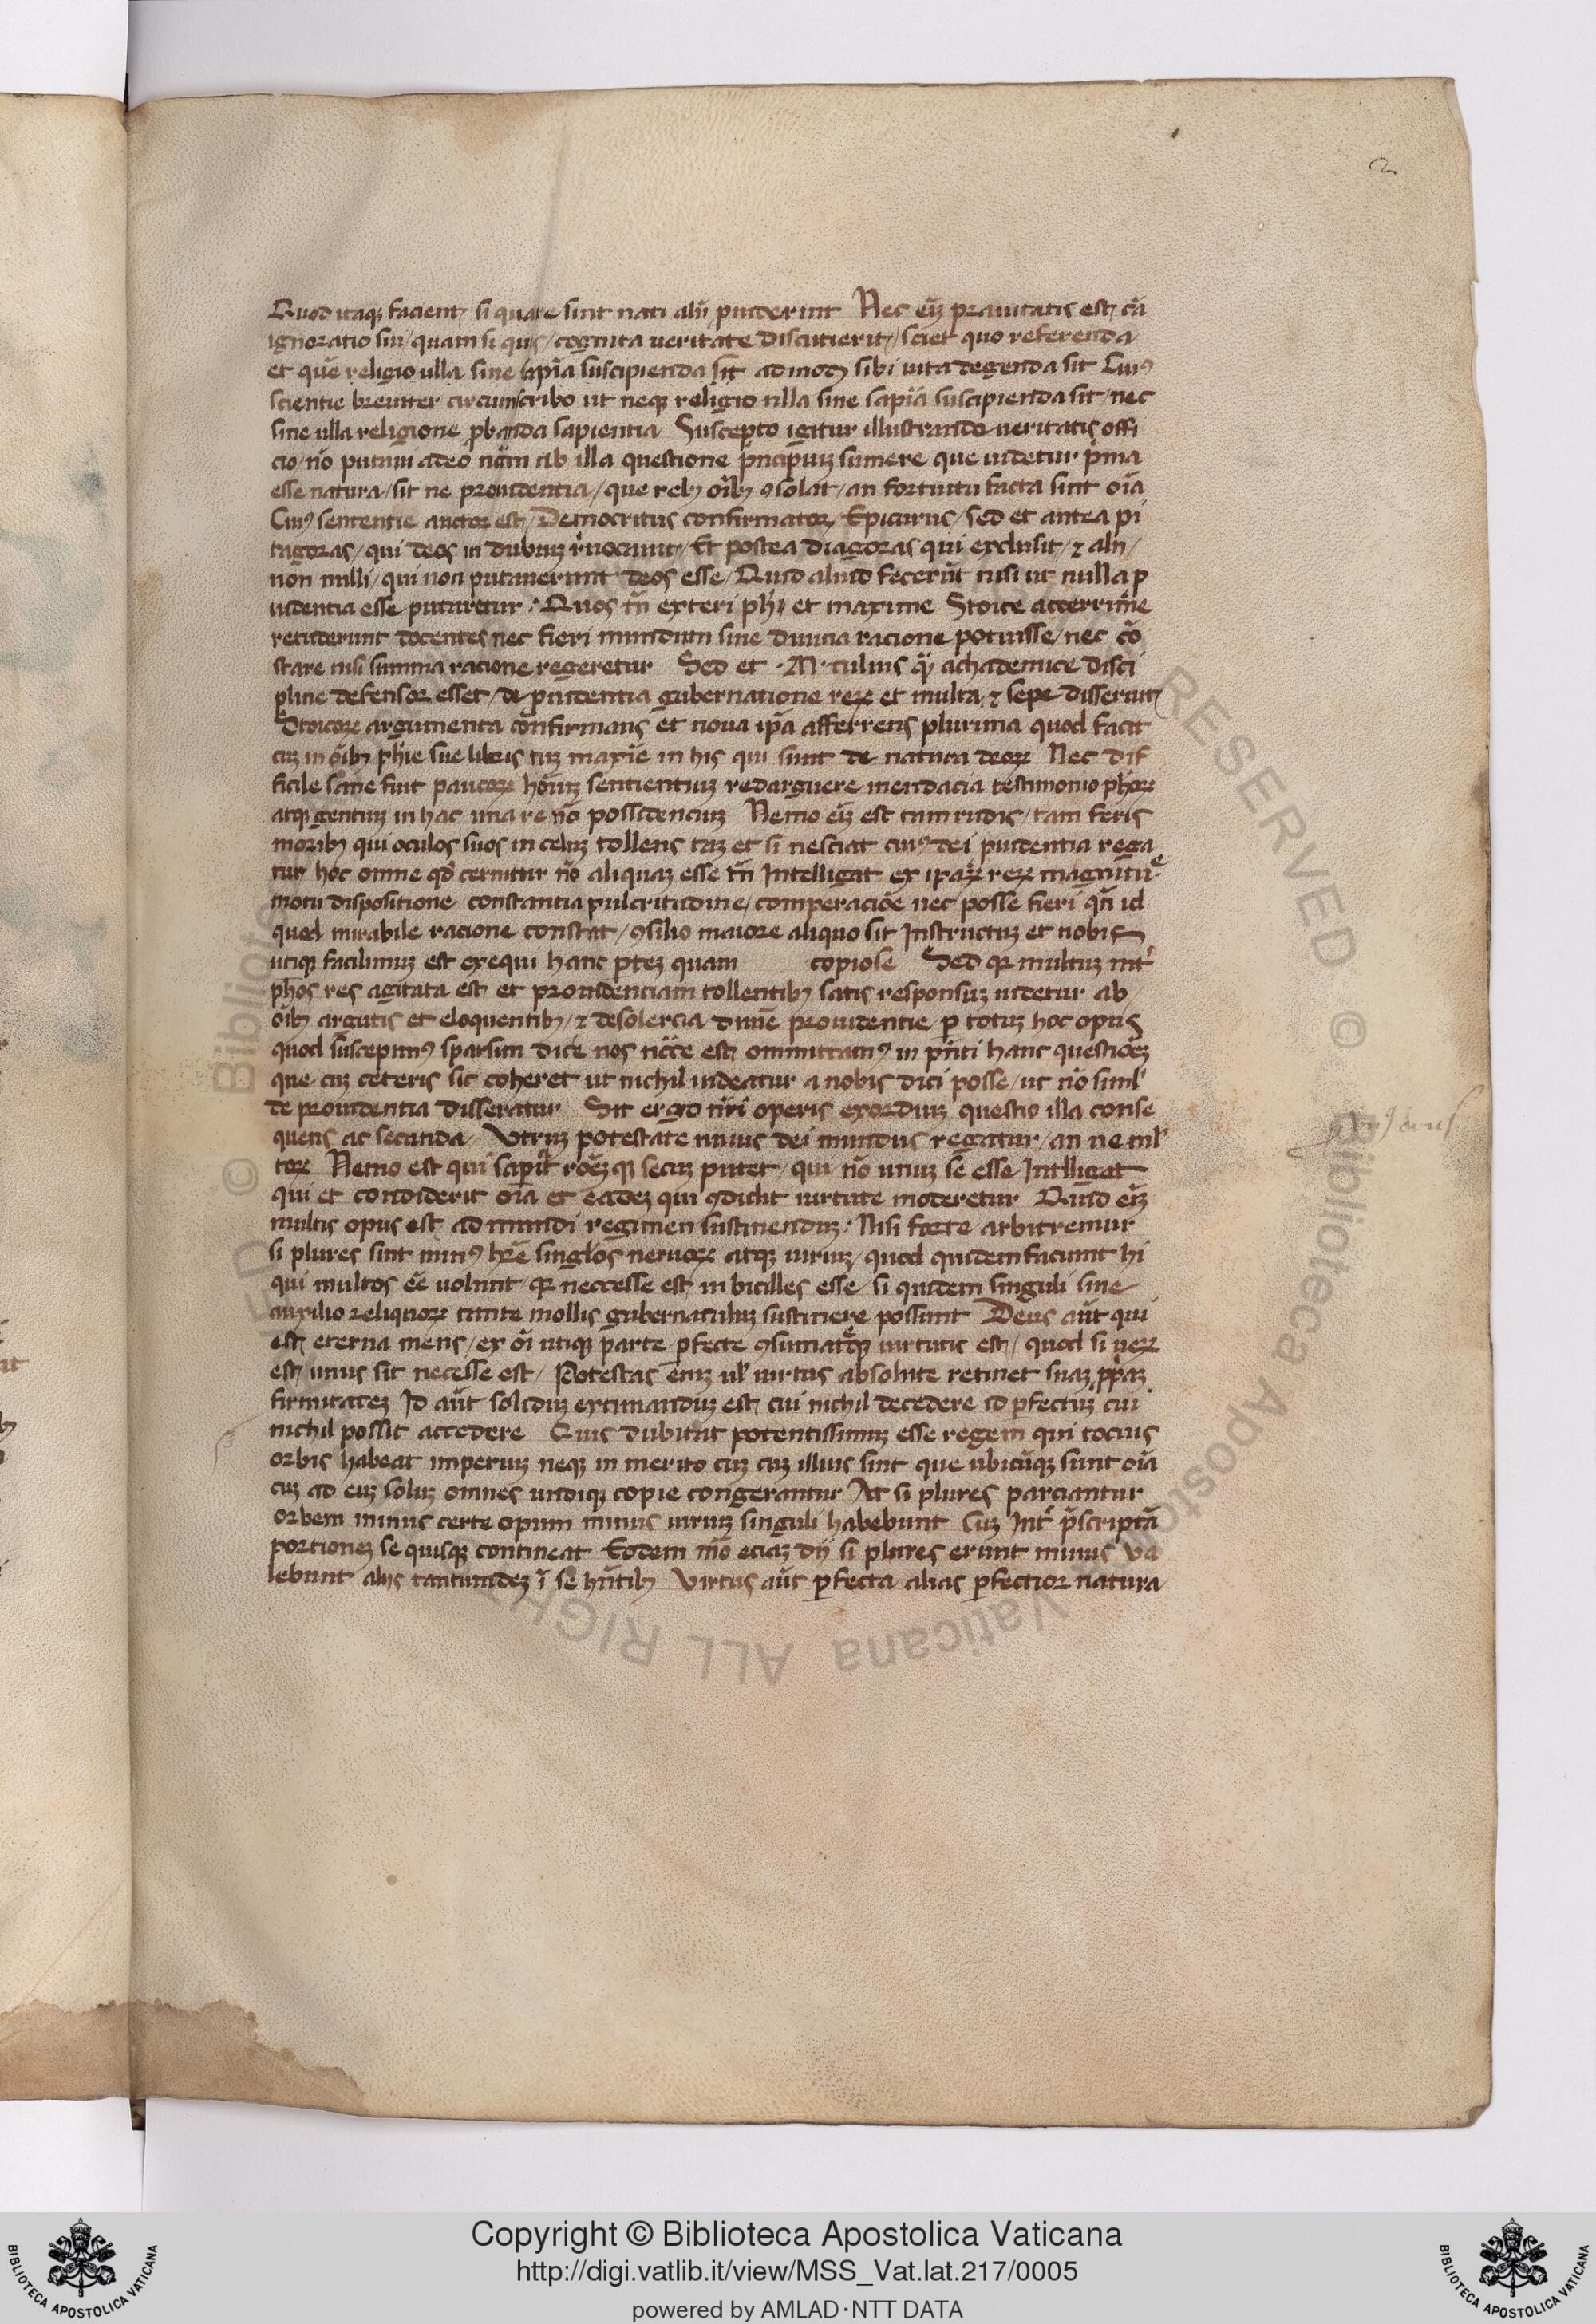 2
Quod itaq; facient, si quare sint nati aliñ ꝓuiderint Nec eñ prauitatis est cã
ignoratio sui / quam si quis / cognita ueritate discutierit / sciet quo referenda
et quẽ religio ulla sine sapiã suscipienda sit ad modꝫ sibi uita degenda sit Cuiꝰ
scientie breuiter circumscribo ut neq; religio ulla sine sapiã suscipienda sit / nec
sine ulla religione ꝓbanda sapientia Suscepto igitur illustrando ueritatis offi
cio / nõ putaui adeo nãm ab illa questione pncipiuꝫ sumere que uidetur pma
esse natura / sit ne prouidentia / que rebꝫ oĩbꝫ ꝯsolat / an fortuitu facta sint oĩa
Cuiꝰ sententie auctor est / Democritus confirmator Epicurus / sed et antea pi
tagoras / qui deos in dubiuꝫ ruocauit / Et postea diagoras qui exclusit / ⁊ alij /
non nulli / qui non putauerunt deos esse / Quid aliud fecerũt nisi ut nulla ꝓ
uidentia esse putaretur · Quos tñ exteri phi et maxime Stoice acerrime
retuderunt docentes nec fieri mundum sine diuina racione potuisse / nec cõ
stare nisi summa racione regeretur Sed et · M · tulius qͣꝫ achademice disci
pline defensor esset / de ꝓuidentia gubernatione reꝝ et multa ⁊ sepe disseruit
Stoicoꝝ argumenta cõfirmans et noua ipã afferrens plurima quod facit
cuꝫ in oĩbꝫ phie sue libris tuꝫ maxie in his qui sunt de natura deoꝝ Nec dif
ficile sane fuit paucoꝝ hoĩuꝫ sentientiuꝫ redarguere mendacia testimonio phoꝝ
atqꝫ gentiuꝫ in hac una re nõ possidenciuꝫ Nemo eñ est tam rudis / tam feris
moribꝫ qui oculos suos in celuꝫ tollens taꝫ et si nesciat cuiꝰ dei ꝓuidentia rega
tur hoc omne qd̃ cernitur nõ aliquaꝫ esse tñ Intelligat ex ipaꝝ reꝝ magnitudie
motu dispositione constantia pulcritudine / comperaciõe nec posse fieri qñ id
quod mirabile racione constat / ꝯsilio maiore aliquo sit Instructuꝫ et nobis
utiqꝫ facilimuꝫ est exequi hanc pteꝫ quam copiose Sed qꝛ multuꝫ int
phos res agitata est et prouidenciam tollentibꝫ satis responsuꝫ uidetur ab
oĩbꝫ argutis et eloquentibꝫ / ⁊ desolercia diuine prouidentie / ꝑ totuꝫ hoc opus
quod suscepimꝰ sparsim dice nos ncce est ommittamꝰ in pnti hanc questiõeꝫ
que cuꝫ ceteris sic coheret ut nichil uideatur a nobis dici posse / ut nõ siml
de prouidentia disseratur Sit ergo nri operis exordiuꝫ questio illa conse
quens ac secunda / Vtruꝫ potestate unius dei mundus regatur / an ne ml
toꝝ Nemo est qui sapit roeꝫqꝫ secuꝫ putet / qui nõ unuꝫ se esse Intlligat
qui et condiderit oĩa et eadeꝫ qui ꝯdidit uirtute moderetur Quid eñ
multis opus est ad mundi regimen sustinenduꝫ · Nisi forte arbitremur
si plures sint minꝰ hre singlos neruoꝝ atqꝫ uiriuꝫ / quod quidem faciunt hi
qui multos eẽ uolunt / qꝛ neccesse est in bicilles esse / si quidem singuli sine
auxilio reliquoꝝ tante mollis gubernaculuꝫ sustinere possunt Deus aũt qui
est eterna mens / ex oĩ utiqꝫ parte ꝑfecte ꝯsumateqꝫ uirtutis est / quod si ueꝝ
est / unus sit necesse est / Potestas eniꝫ ul uirtus absolute retinet suaꝫ ꝓpaꝫ
firmitateꝫ Id aũt soliduꝫ extimanduꝫ est cui nichil decedere id ꝑfectuꝫ cui
nichil possit accedere Quis dubitat potentissimuꝫ esse regem qui tocius
orbis habeat imperiuꝫ neqꝫ in merito cuꝫ cuꝫ illius sint que ubicũqꝫ sunt oĩa
cuꝫ ad euꝫ soluꝫ omnes undiqꝫ copie congerantur At si plures parciantur
orbem minus certe opum minus uiriuꝫ singuli habebunt Cuꝫ Int pscriptã
portioneꝫ se quisqꝫ contineat Eodem mõ eciaꝫ dij si plures erunt minus ua
lebunt alijs tantumdeꝫ ĩ se hñtibꝫ Virtus aũt ꝑfecta alias ꝑfectior natura
Copyright © Biblioteca Apostolica Vaticana
http://digi.vatlib.it/view/MSS_Vat.lat.217/0005
powered by AMLAD·NTT DATA